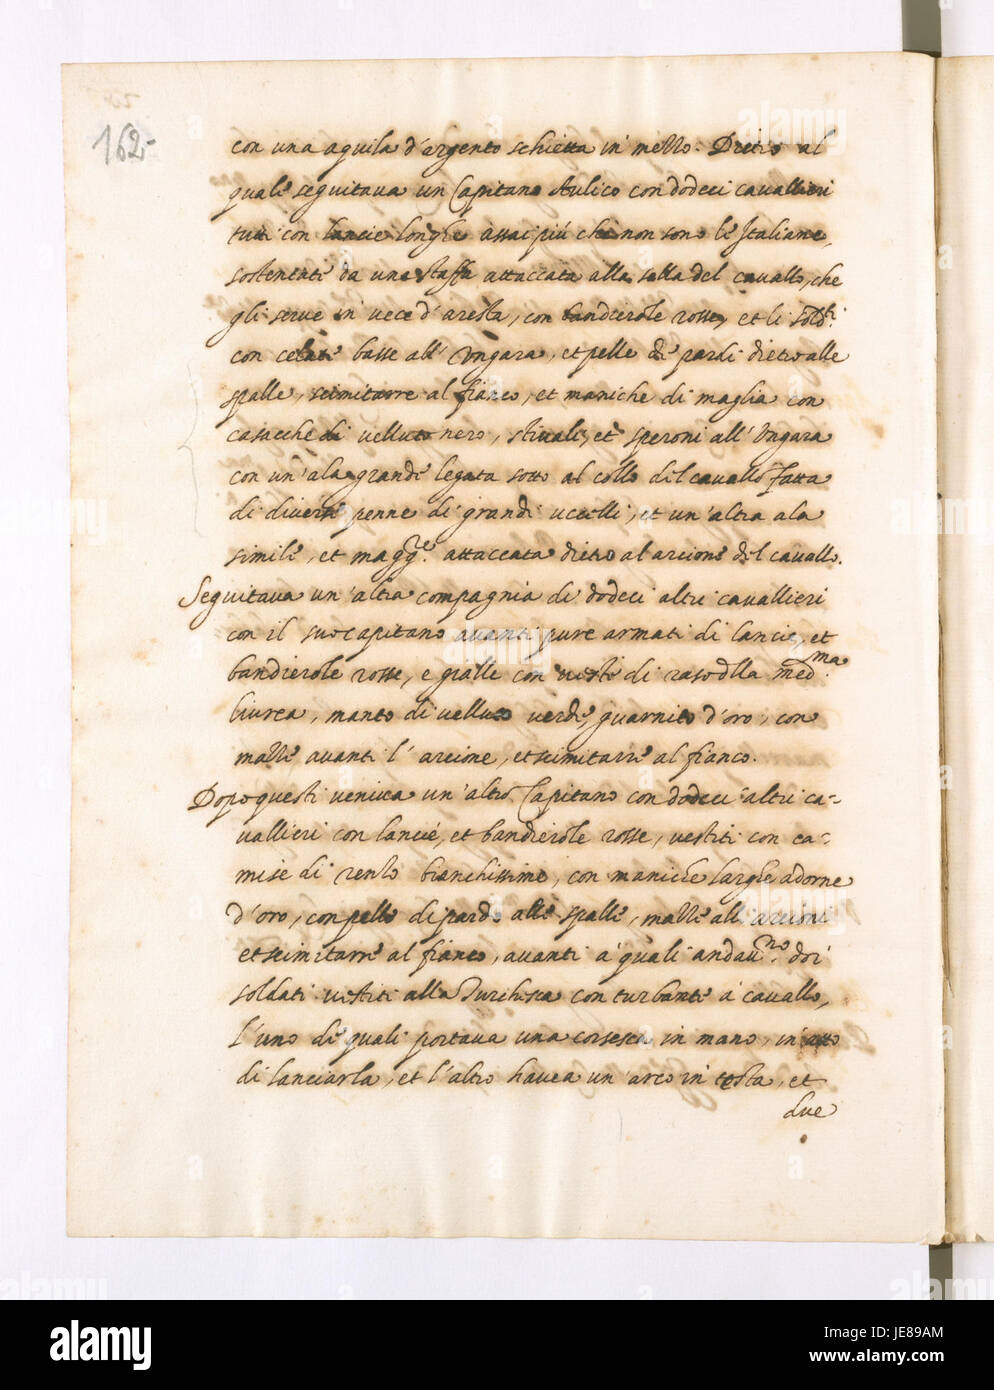 162
con una aquila d'argento schietta in mezzo. Dietro al
quale seguitava un Capitano Aulico con dodeci cavallieri
tutti con lancie longhe assai più che non sono le Italiane,
sostentate da una staffa attaccata alla sella del cavallo, che
gli serve in vece d'aresta, con bandierole rosse, et li sold.ti
con celate basse all'Ungara, et pelle di pardi dietro alle
spalle, scimitarre al fianco, et maniche di maglia con
casacche di velluto nero, stivali, et speroni all'Ungara
con un'ala grande legata sotto al collo del cavallo fatta
di diverse penne di grandi uccelli, et un'altra ala
simile, et magg.re attaccata dietro al arcione del cavallo.
Seguitava un'altra compagnia di dodeci altri cavallieri
con il suo capitano avanti pure armati di lancie, et
bandierole rosse, e gialle con veste di raso dlla med.ma
livrea, manto di velluto verde, guarnito d'oro, con
mazze avanti l'arcione, et scimitarre al fianco.
Dopo questi veniva un'altro Capitano con dodeci altri ca-
vallieri con lancie, et bandierole rosse, vestiti con ca-
mise di renso bianchissime, con maniche larghe adorne
d'oro, con pelle di pardo alle spalle, mazze alli arcioni
et scimitarre al fianco, avanti a quali andav.no doi
soldati vestiti alla Turchesca con turbante a cavallo,
l'uno de quali portava una corsesca in mano, in atto
di lanciarla, et l'altro havea un'arco in testa, et
due
alamy
JE89AM
www.alamy.com